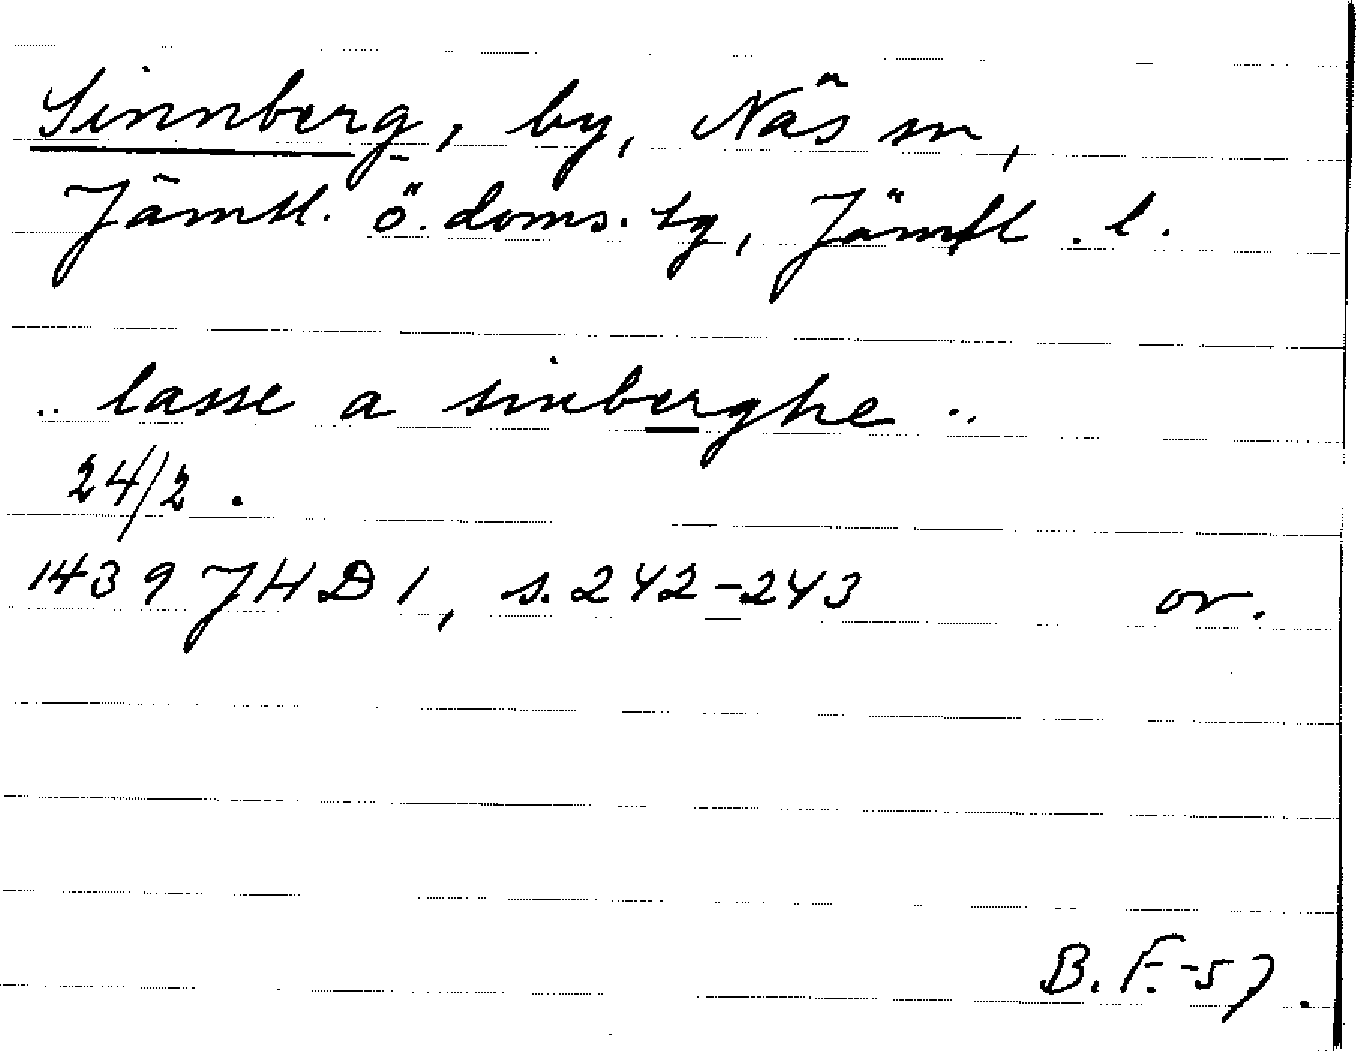 Sinnberg, by, Näs sn,
Jämtl. ö. doms. tg, Jämtl. l.
.. lasse a sinberghe ..
24/2.
1439 JHD 1, s. 242-243 or.
B. F.-57.